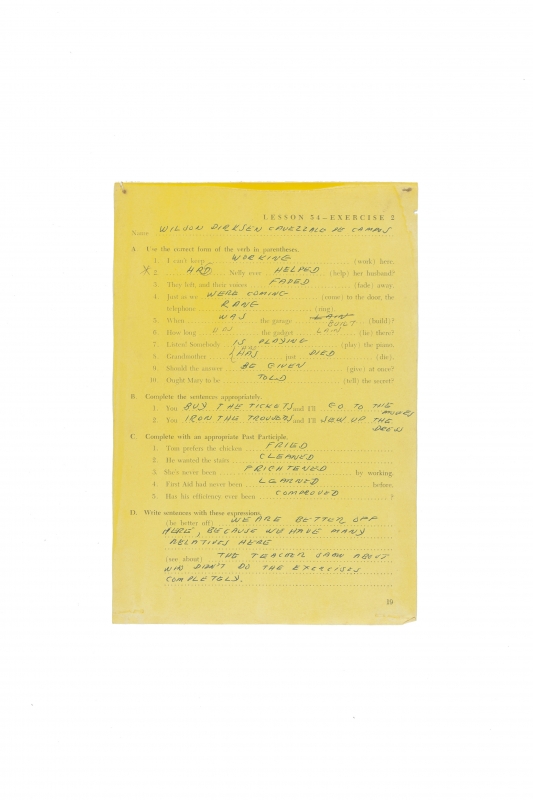 LESSON 54—EXERCISE 2
Name WILSON DIRKSEN CAVEZZALE DE CAMPOS
A Use the correct form of the verb in parentheses.
1. I can't keep WORKING (work) here.
X 2. HAD Nelly ever HELPED (help) her husband?
3. They left, and their voices FADED (fade) away.
4. Just as we WERE COMING (come) to the door, the
telephone RANG (ring)
5. When WAS the garage BUILT (build)?
6. How long HAS the gadget LAIN (lie) there?
7. Listen! Somebody IS PLAYING (play) the piano.
8. Grandmother HAS just DIED (die).
9. Should the answer BE GIVEN (give) at once?
10. Ought Mary to be TOLD (tell) the secret?
B. Complete the sentences appropriately.
1. You BUY THE TICKETS and I'll GO TO THE
MOVIES
2. You IRON THE TROUSERS and I'll SEW UP THE
DREW
C. Complete with an appropriate Past Participle.
1. Tom prefers the chicken FRIED
2. He wanted the stairs CLEANED
3. She's never been FRIGHTENED by working.
4. First Aid had never been LEARNED before.
5. Has his efficiency ever been COMPROVED ?
D. Write sentences with these expressions.
(be better off) WE ARE BETTER OFF
HERE, BECAUSE WE HAVE MANY
RELATIVES HERE
(see about) THE TEACHER SAW ABOUT
WHO DIDN'T DO THE EXERCISES
COMPLETELY.
19